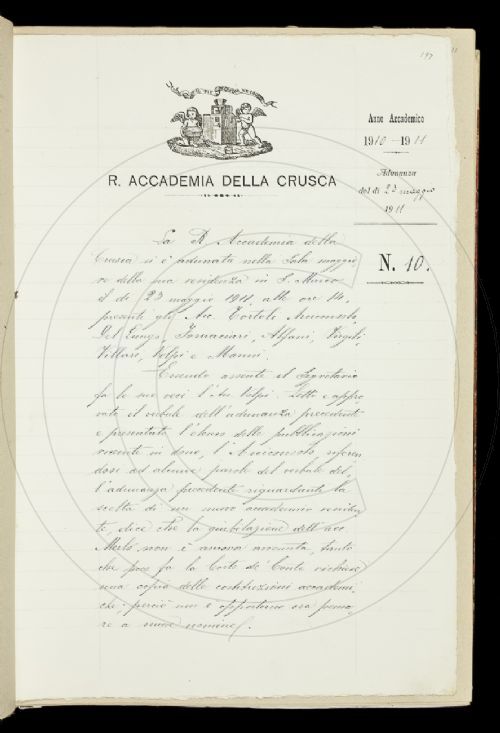 197
11
IL PIÙ BEL FIOR NE COGLIE
R. ACCADEMIA DELLA CRUSCA
Anno Accademico
1910-1911
Adunanza
del dì 23 maggio
1911
N. 10.
La R Accademia della
Crusca si è adunata nella Sala maggio
re della sua residenza in S. Marco
il dì 23 maggio 1911, alle ore 14,
presenti gli Acc. Tortoli Arciconsolo,
Del Lungo, Fornaciari, Alfani, Vergili,
Villari, Volpi e Manni.
Essendo assente il Segretario
fa le sue veci l'Acc. Volpi. Letto e appro
vato il verbale dell'adunanza precedente
e presentato l'elenco delle pubblicazioni
venute in dono, l'Arciconsolo, riferen
dosi ad alcune parole del verbale del,
l'adunanza precedente riguardanti la
scelta di un nuovo accademico residen
te, dice che la giubilazione dell'acc.
Merlo non è ancora avvenuta, tanto
che poco fa la Corte de' Conti richiese
una copia delle costituzioni accademi,
che: perciò non è opportuno ora pensa,
re a nuove nomine.